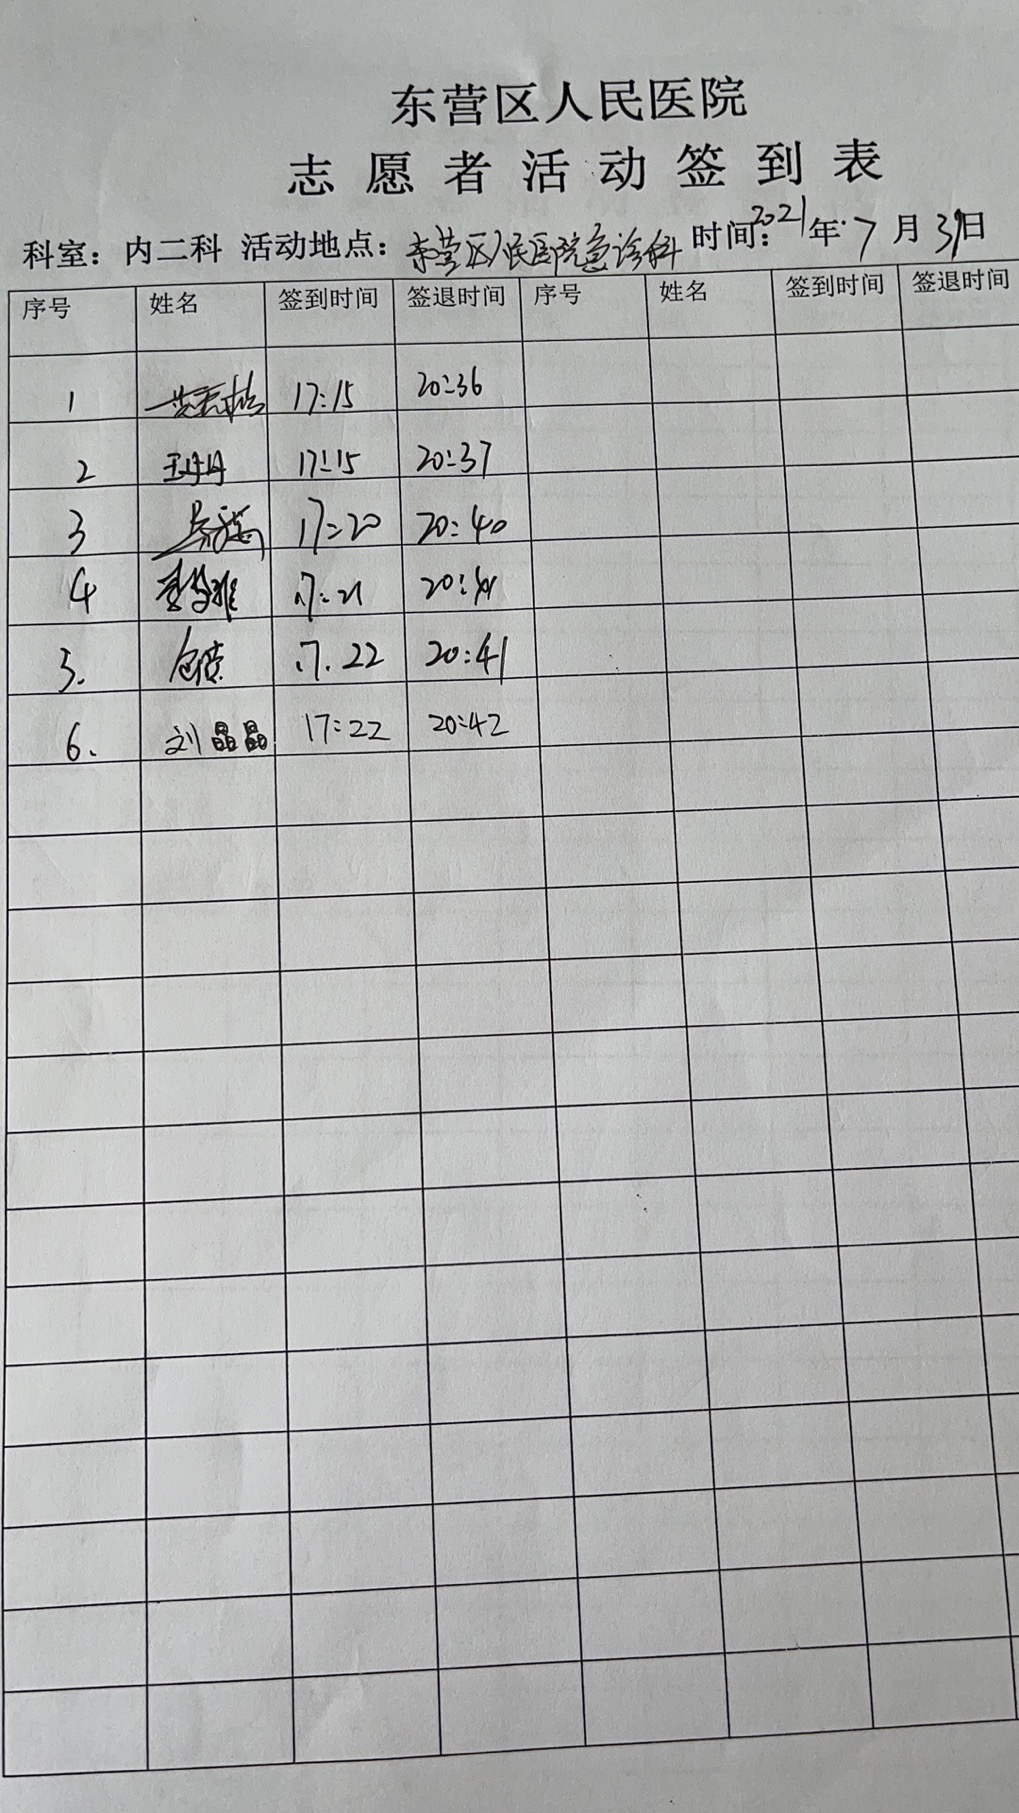 东营区人民医院
志愿者活动签到表
科室：内二科 活动地点：东营区人民医院急诊科 时间：2021年7月31日
序号 姓名 签到时间 签退时间 序号 姓名 签到时间 签退时间
1 17:15 20:36
2 王丹丹 17:15 20:37
3 17:20 20:40
4 17:21 20:41
5. 17.22 20:41
6. 刘晶晶 17:22 20:42